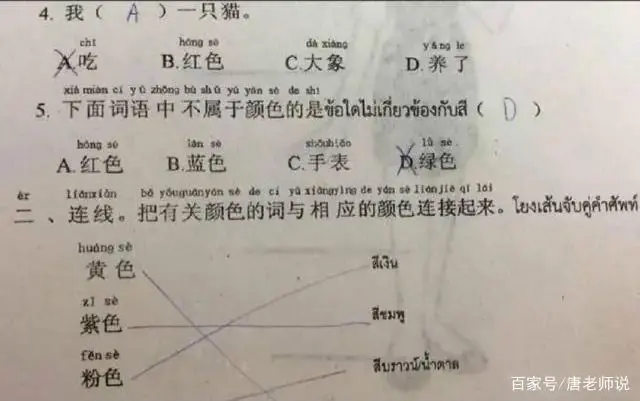 4. 我（ A ）一只猫。
chī hóng sè dà xiàng yǎng le
A.吃 B.红色 C.大象 D.养了
xià miàn cí yǔ zhōng bù shǔ yú yán sè de shì
5. 下面词语中不属于颜色的是ข้อใดไม่เกี่ยวข้องกับสี（ D ）
hóng sè lán sè shǒubiǎo lǜ sè
A.红色 B.蓝色 C.手表 D.绿色
èr liánxiàn bǎ yǒuguānyán sè de cí yǔ xiāngyìng de yán sè liánjiē qǐ lái
二、连线。把有关颜色的词与相应的颜色连接起来。โยงเส้นจับคู่คำศัพท์
huáng sè
黄色 สีเงิน
zǐ sè
紫色 สีชมพู
fěn sè
粉色 สีบราวน์/น้ำตาล
百家号/唐老师说